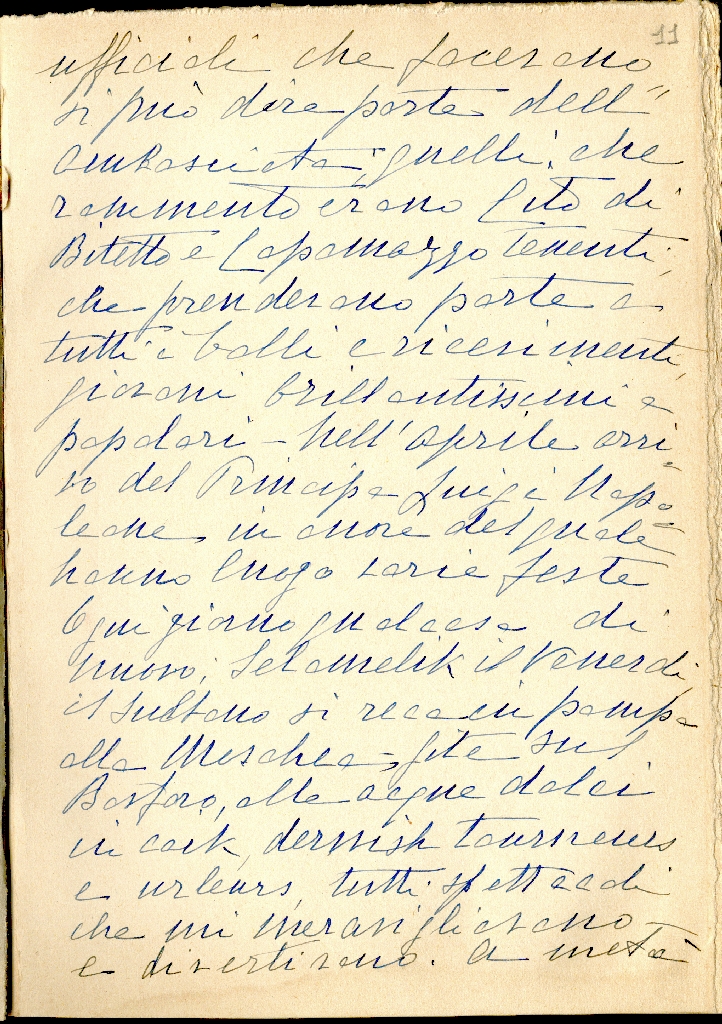 11
ufficiali che facevano
si può dire parte dell'
ambasciata; quelli che
rammento erano Lito di
Bitetto e Capomazzo tenenti,
che prendevano parte a
tutti i balli e ricevimenti,
giovani brillantissimi e
popolari - Nell'aprile arri-
vo del Principe Luigi Napo-
leone, in onore del quale
hanno luogo varie feste
Ogni giorno qualcosa di
nuovo; Selamelik il Venerdi,
il Sultano si reca in pompa
alla Moschea, gite sul
Bosforo, alle acque dolci
in caik, dervish tourneurs
e urleurs, tutti spettacoli
che mi meravigliavano
e divertivano. A metà